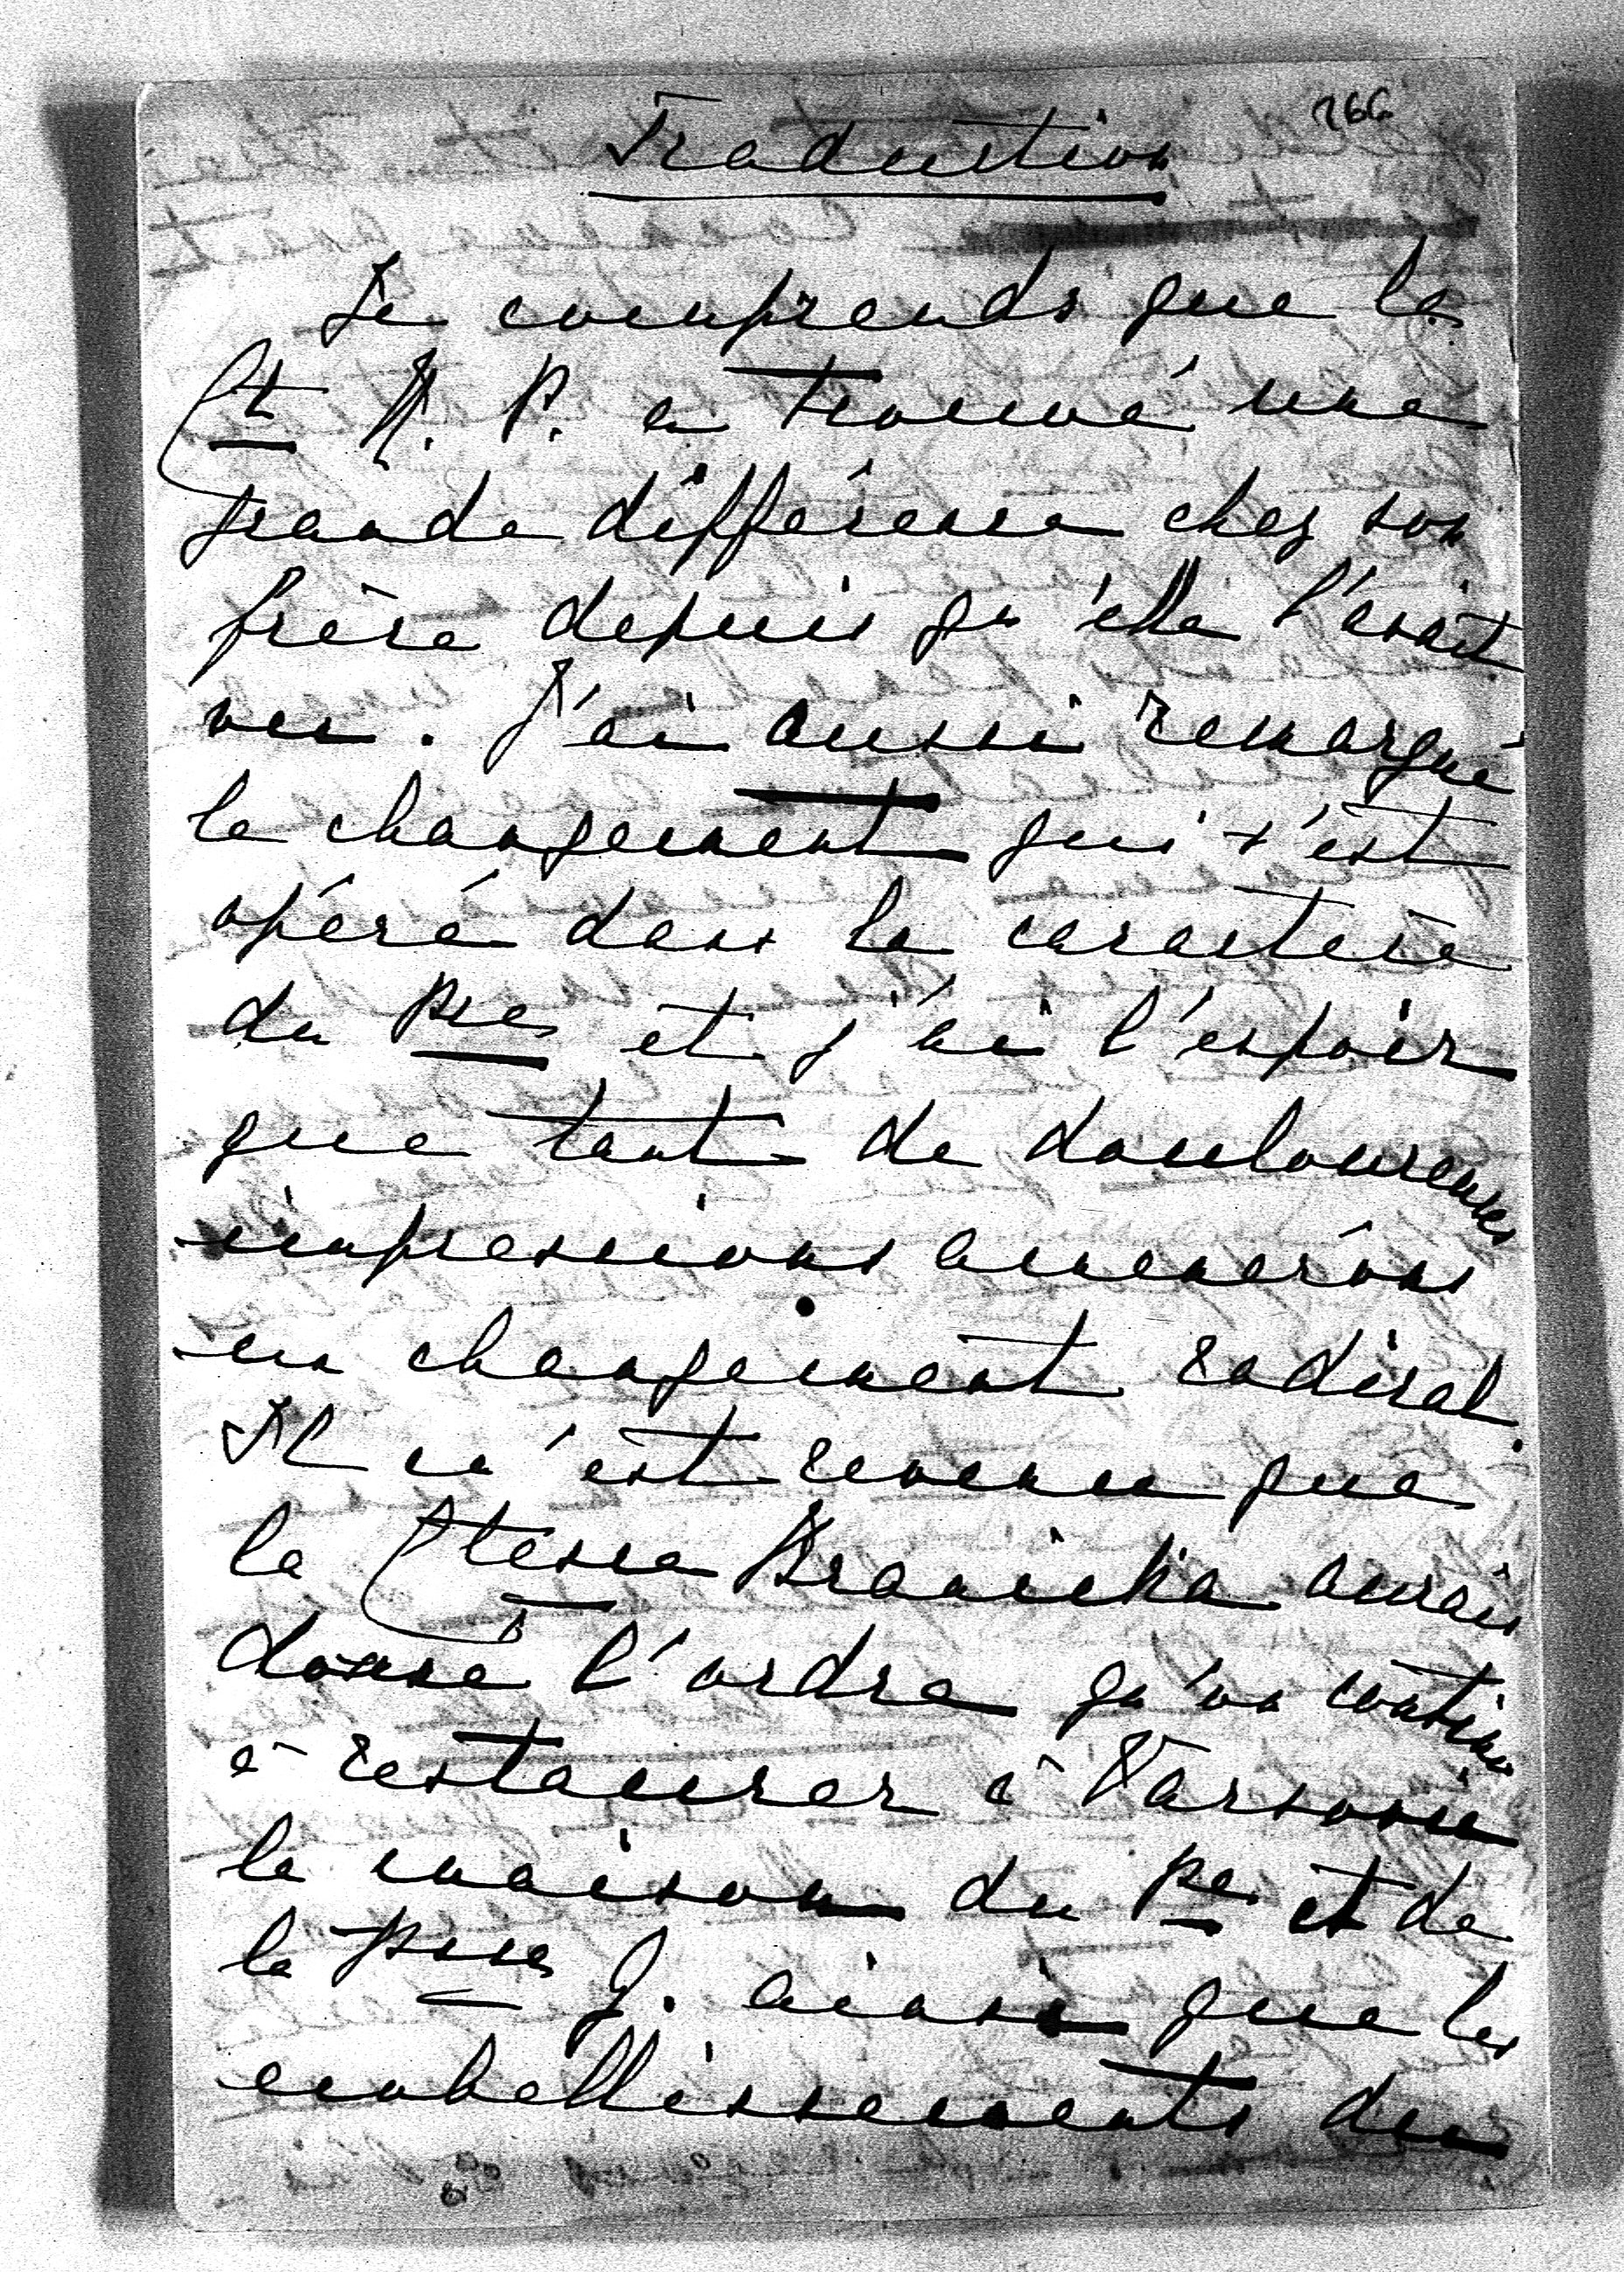 266
Traduction
Je comprends que la
Ctt M. P. a trouvé une
grande différence chez son
frère depuis qu'elle l'avait
vu. J'ai aussi remarqué
le changement qui s'est
opéré dans le caractère
du Pce et j'ai l'espoir
que tant de douloureuses
impressions amenerons
un changement radical.
Il m'est revenu que
la Ctesse Branicka aurais
donné l'ordre qu'on continue
à restaurer à Varsovie
la maison du Pce et de
la Psse J. ainsi que les
embellissements du